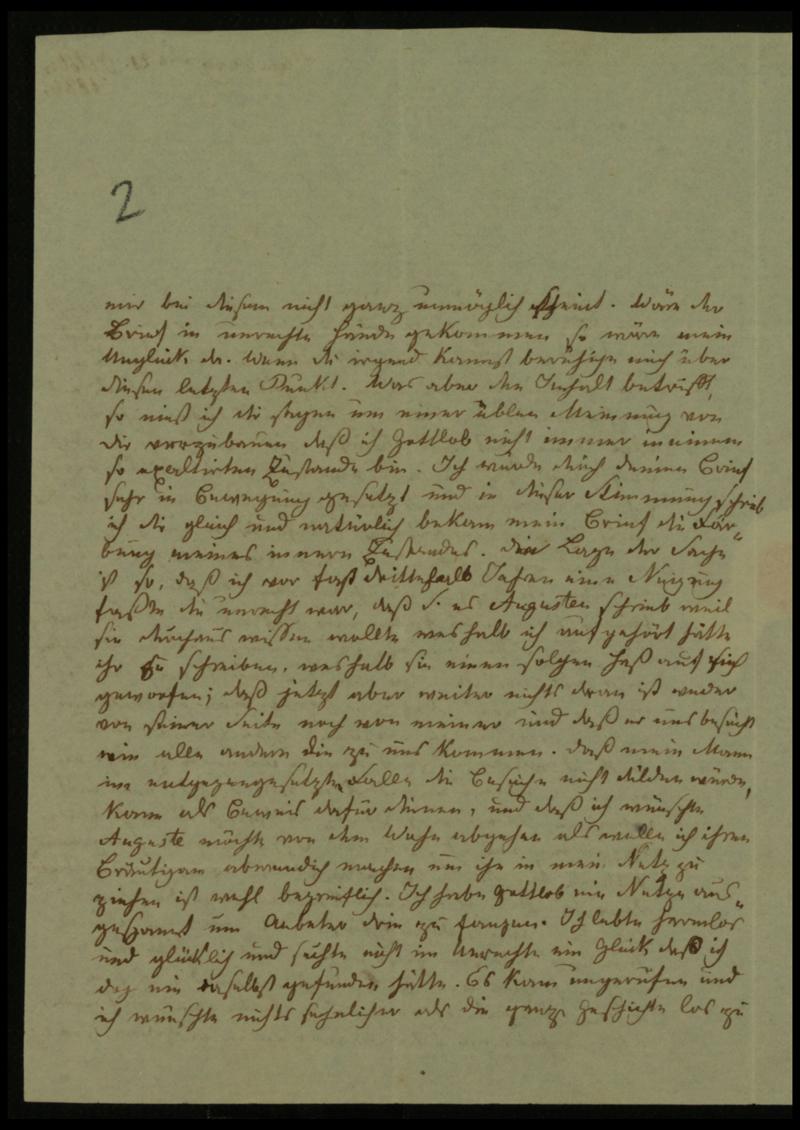 2
mir bei diesem nicht ganz unmöglich scheint. Wäre der
Brief in unrechte Hände gekommen so wäre mein
Unglück da. Wenn du irgend kannst beruhige mich über
diesen letzten Punkt. Was aber den Inhalt betrifft,
so muß ich dir sagen um einer üblen Meinung von
dir vorzubauen daß ich gottlob nicht immer in einem
so exaltirten Zustande bin. Ich wurde durch deinen Brief
sehr in Bewegung gesetzt und in dieser Stimmung schrieb
ich dir gleich und natürlich bekam mein Brief die Fär-
bung meines innern Zustandes. Die Lage der Sache
ist so, daß ich vor fast drittehalb Jahren eine Neigung
faßte die unrecht war, daß S. es Augusten schrieb weil
sie durchaus wissen wollte weshalb ich aufgehört hätte
ihr zu schreiben, weshalb sie einen solchen Haß auf mich
geworfen; daß jetzt aber weiter nichts daran ist weder
von seiner Seite noch von meiner und daß er uns besucht
wie alle andern die zu uns kommen. Daß mein Mann
im entgegengesetzten Falle die Besuche nicht dulden würde,
kann als Beweis dafür dienen, und daß ich wünschte
Auguste möchte von dem Wahn abgehen als wolle ich ihren
Bräutigam abwendich machen um ihn in mein Netz zu
ziehen ist wohl begreiflich. Ich habe gottlob nie Netze aus-
gespannt um Anbeter drin zu fangen. Ich lebte harmlos
und glücklich und suchte nicht im Unrechte ein Glück daß ich
doch nie daselbst gefunden hätte. Es kam ungerufen und
ich wünschte nichts sehnlicher als die ganze Geschichte los zu